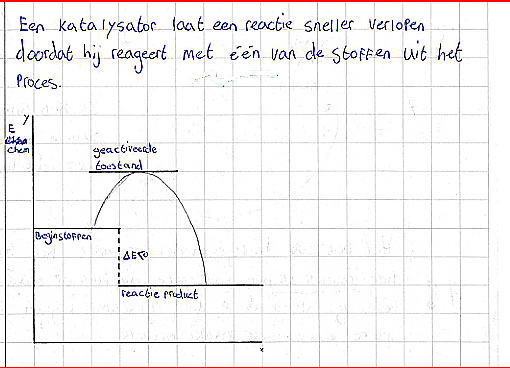 Een katalysator laat een reactie sneller verlopen
doordat hij reageert met één van de stoffen uit het
proces.
y
E
chem
geactiveerde
toestand
Beginstoffen
ΔE<0
reactie product
x